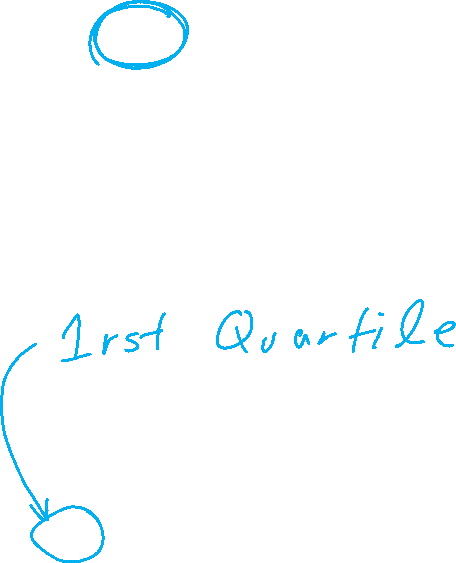 1rst Quartile